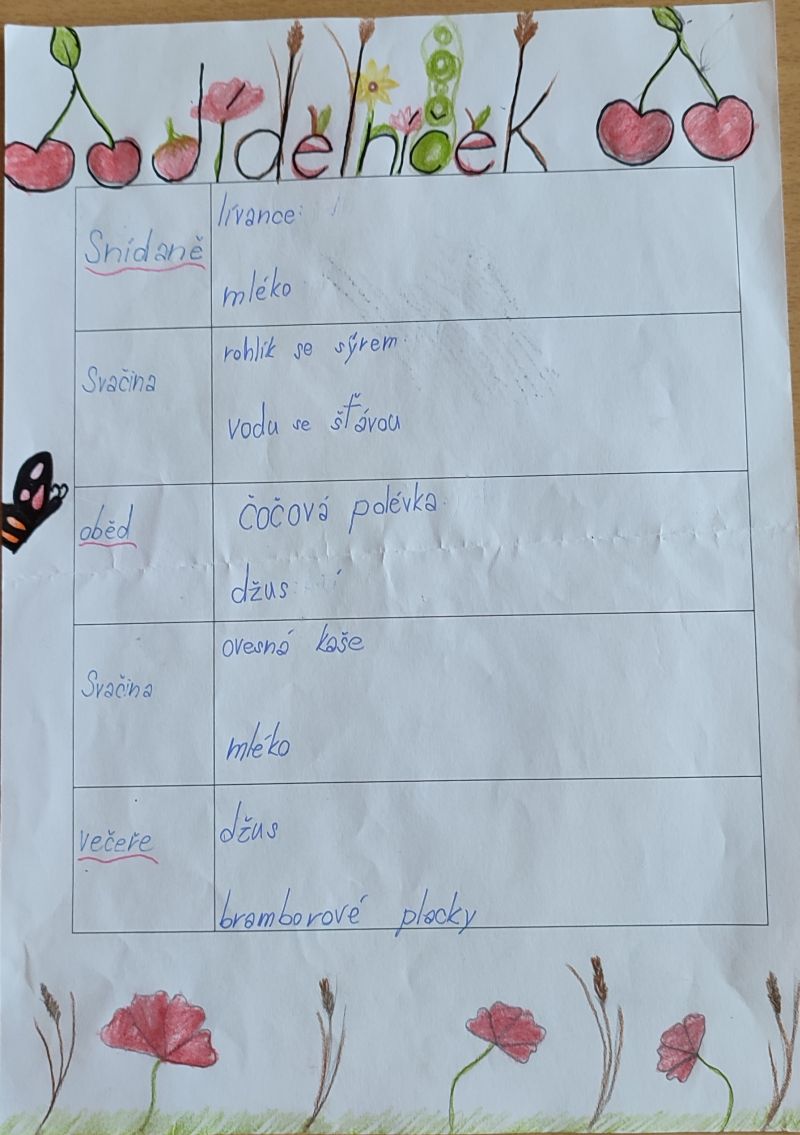 jídelníček
Snídaně
lívance
mléko
Svačina
rohlík se sýrem
vodu se šťávou
oběd
čočová polévka
džus
Svačina
ovesná kaše
mléko
večeře
džus
bramborové placky